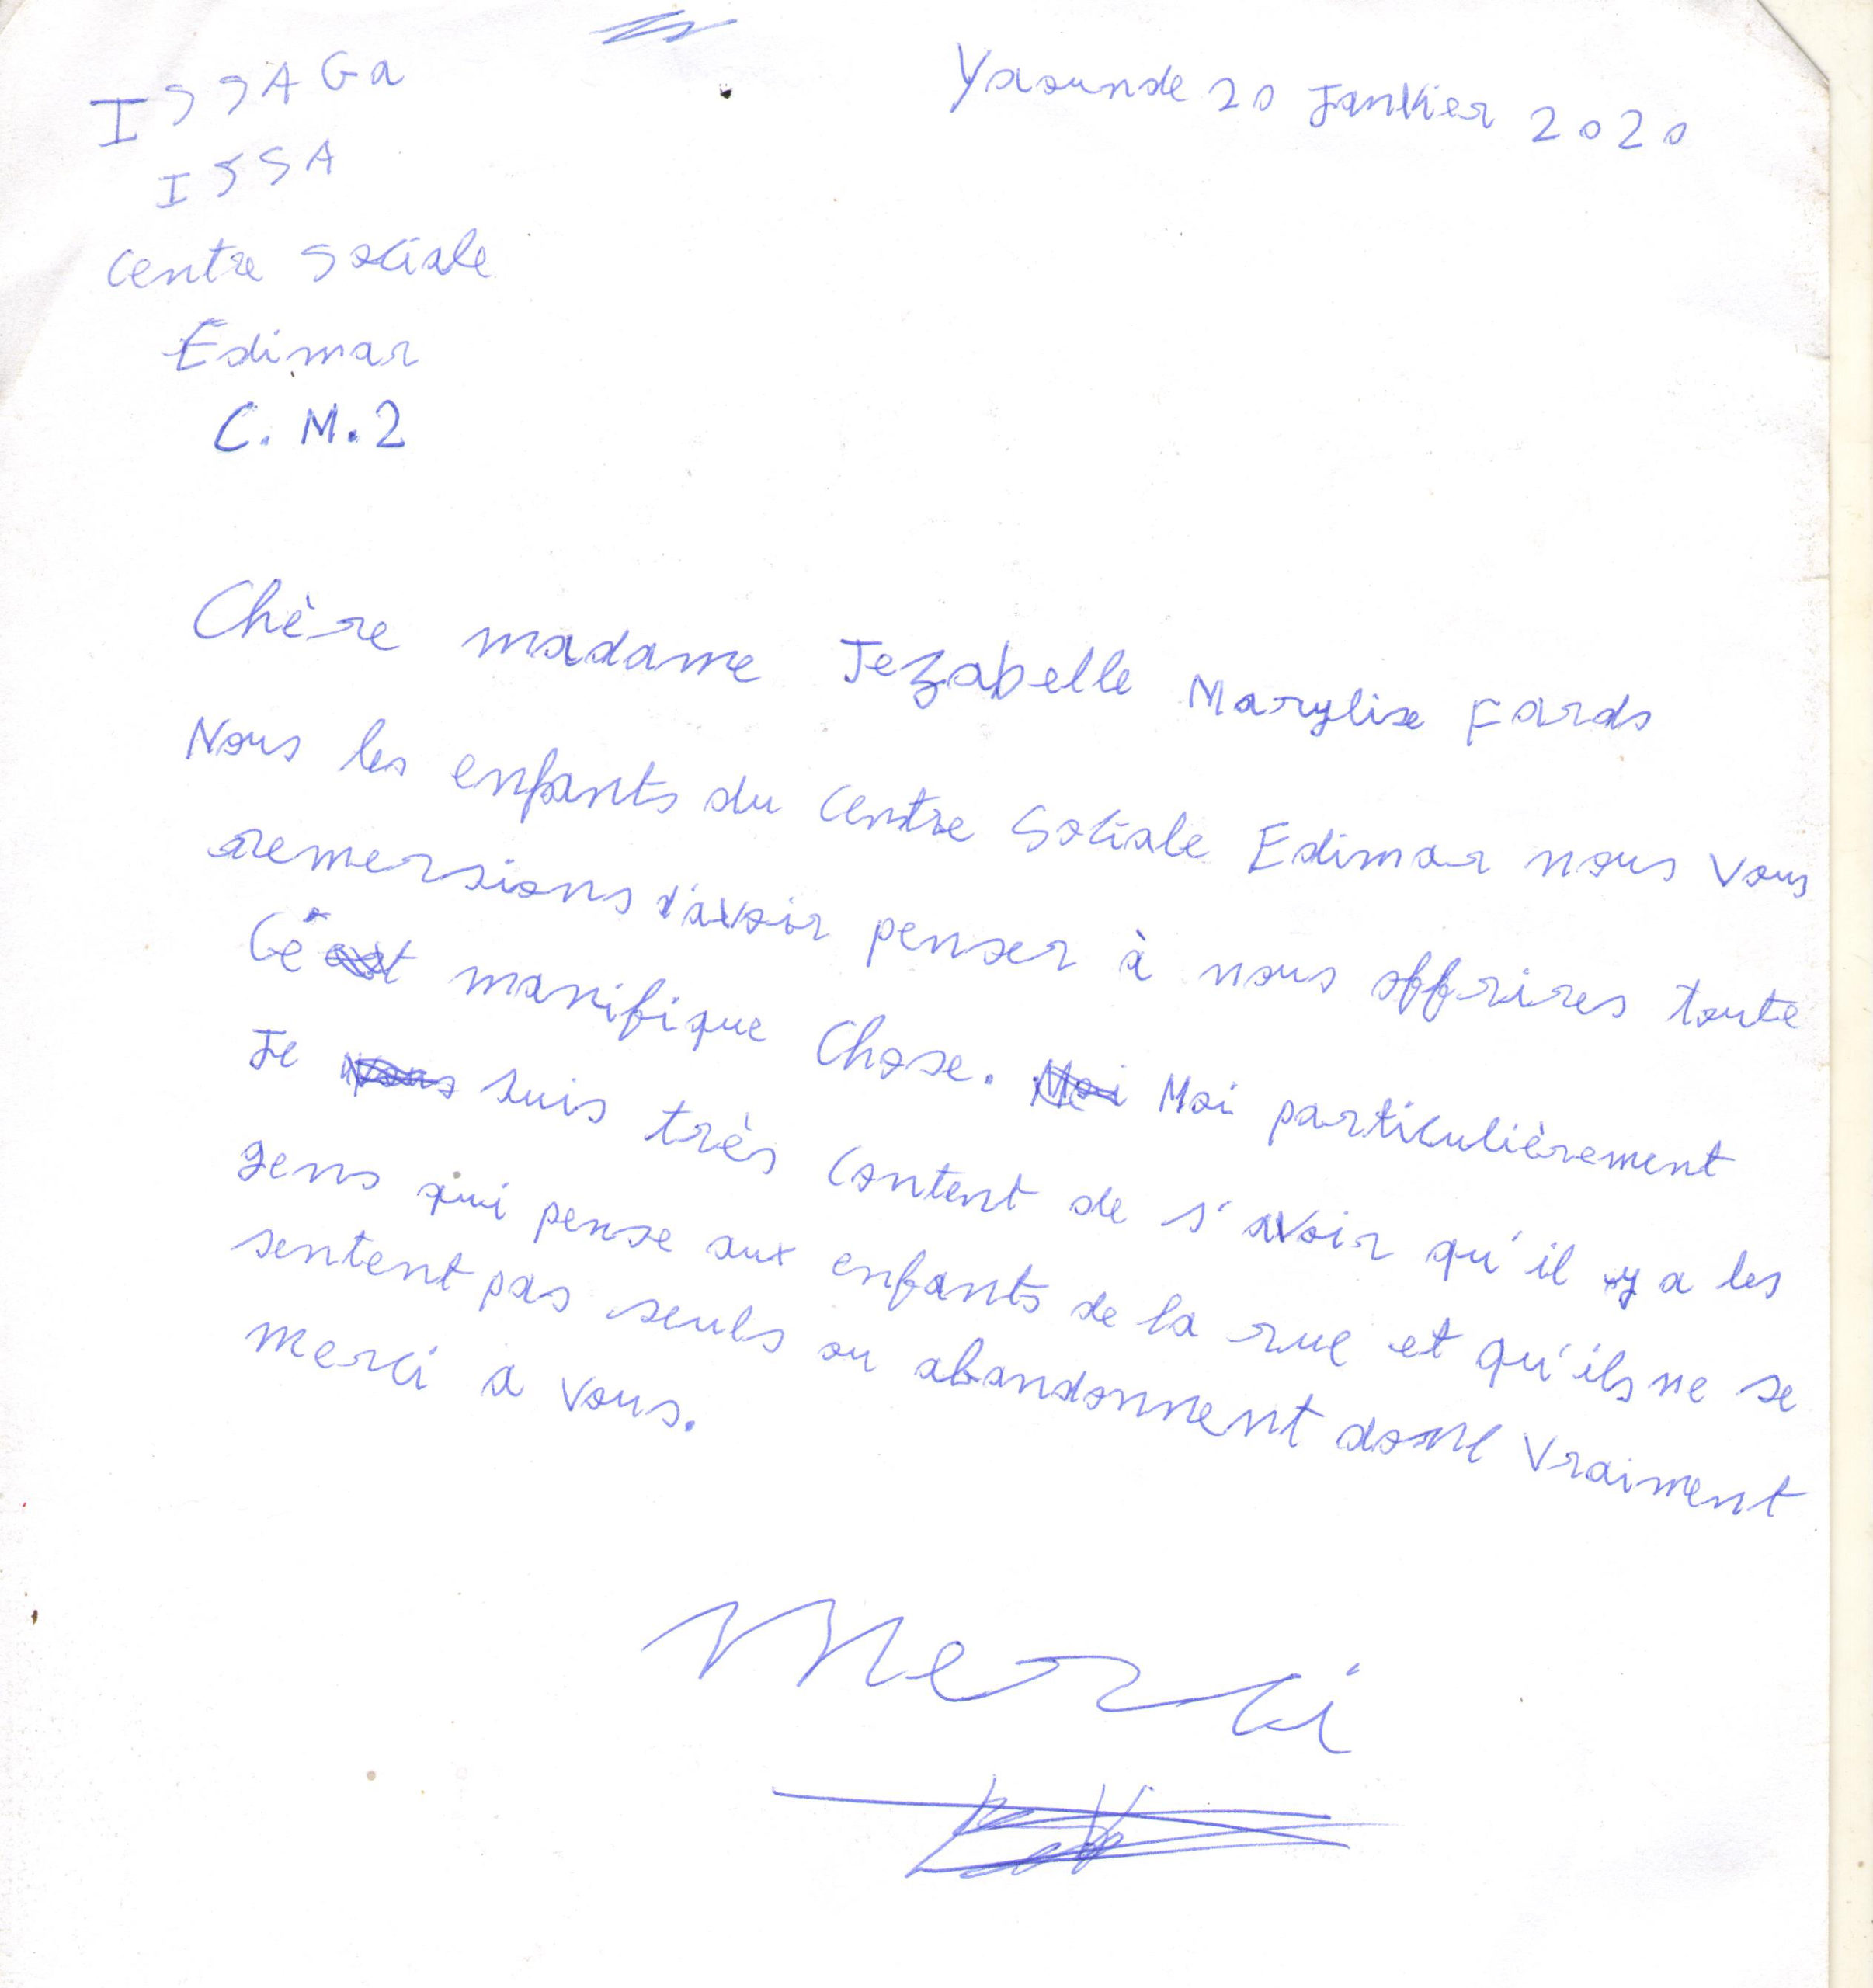 Yaounde 20 Janvier 2020
ISSAGa
ISSA
Centre Sociale
Edimar
C.M.2
Chère madame Jezabelle Marylise Fards
Nous les enfants du Centre Sociale Edimar nous vous
remersions d'avoir penser à nous offrires toute
Ce manifique Chose. Moi particulièrement
Je suis très Content de s'avoir qu'il y a les
gens qui pense aux enfants de la rue et qu'ils ne se
sentent pas seuls ou abandonnent donc vraiment
merci a vous.
Merci